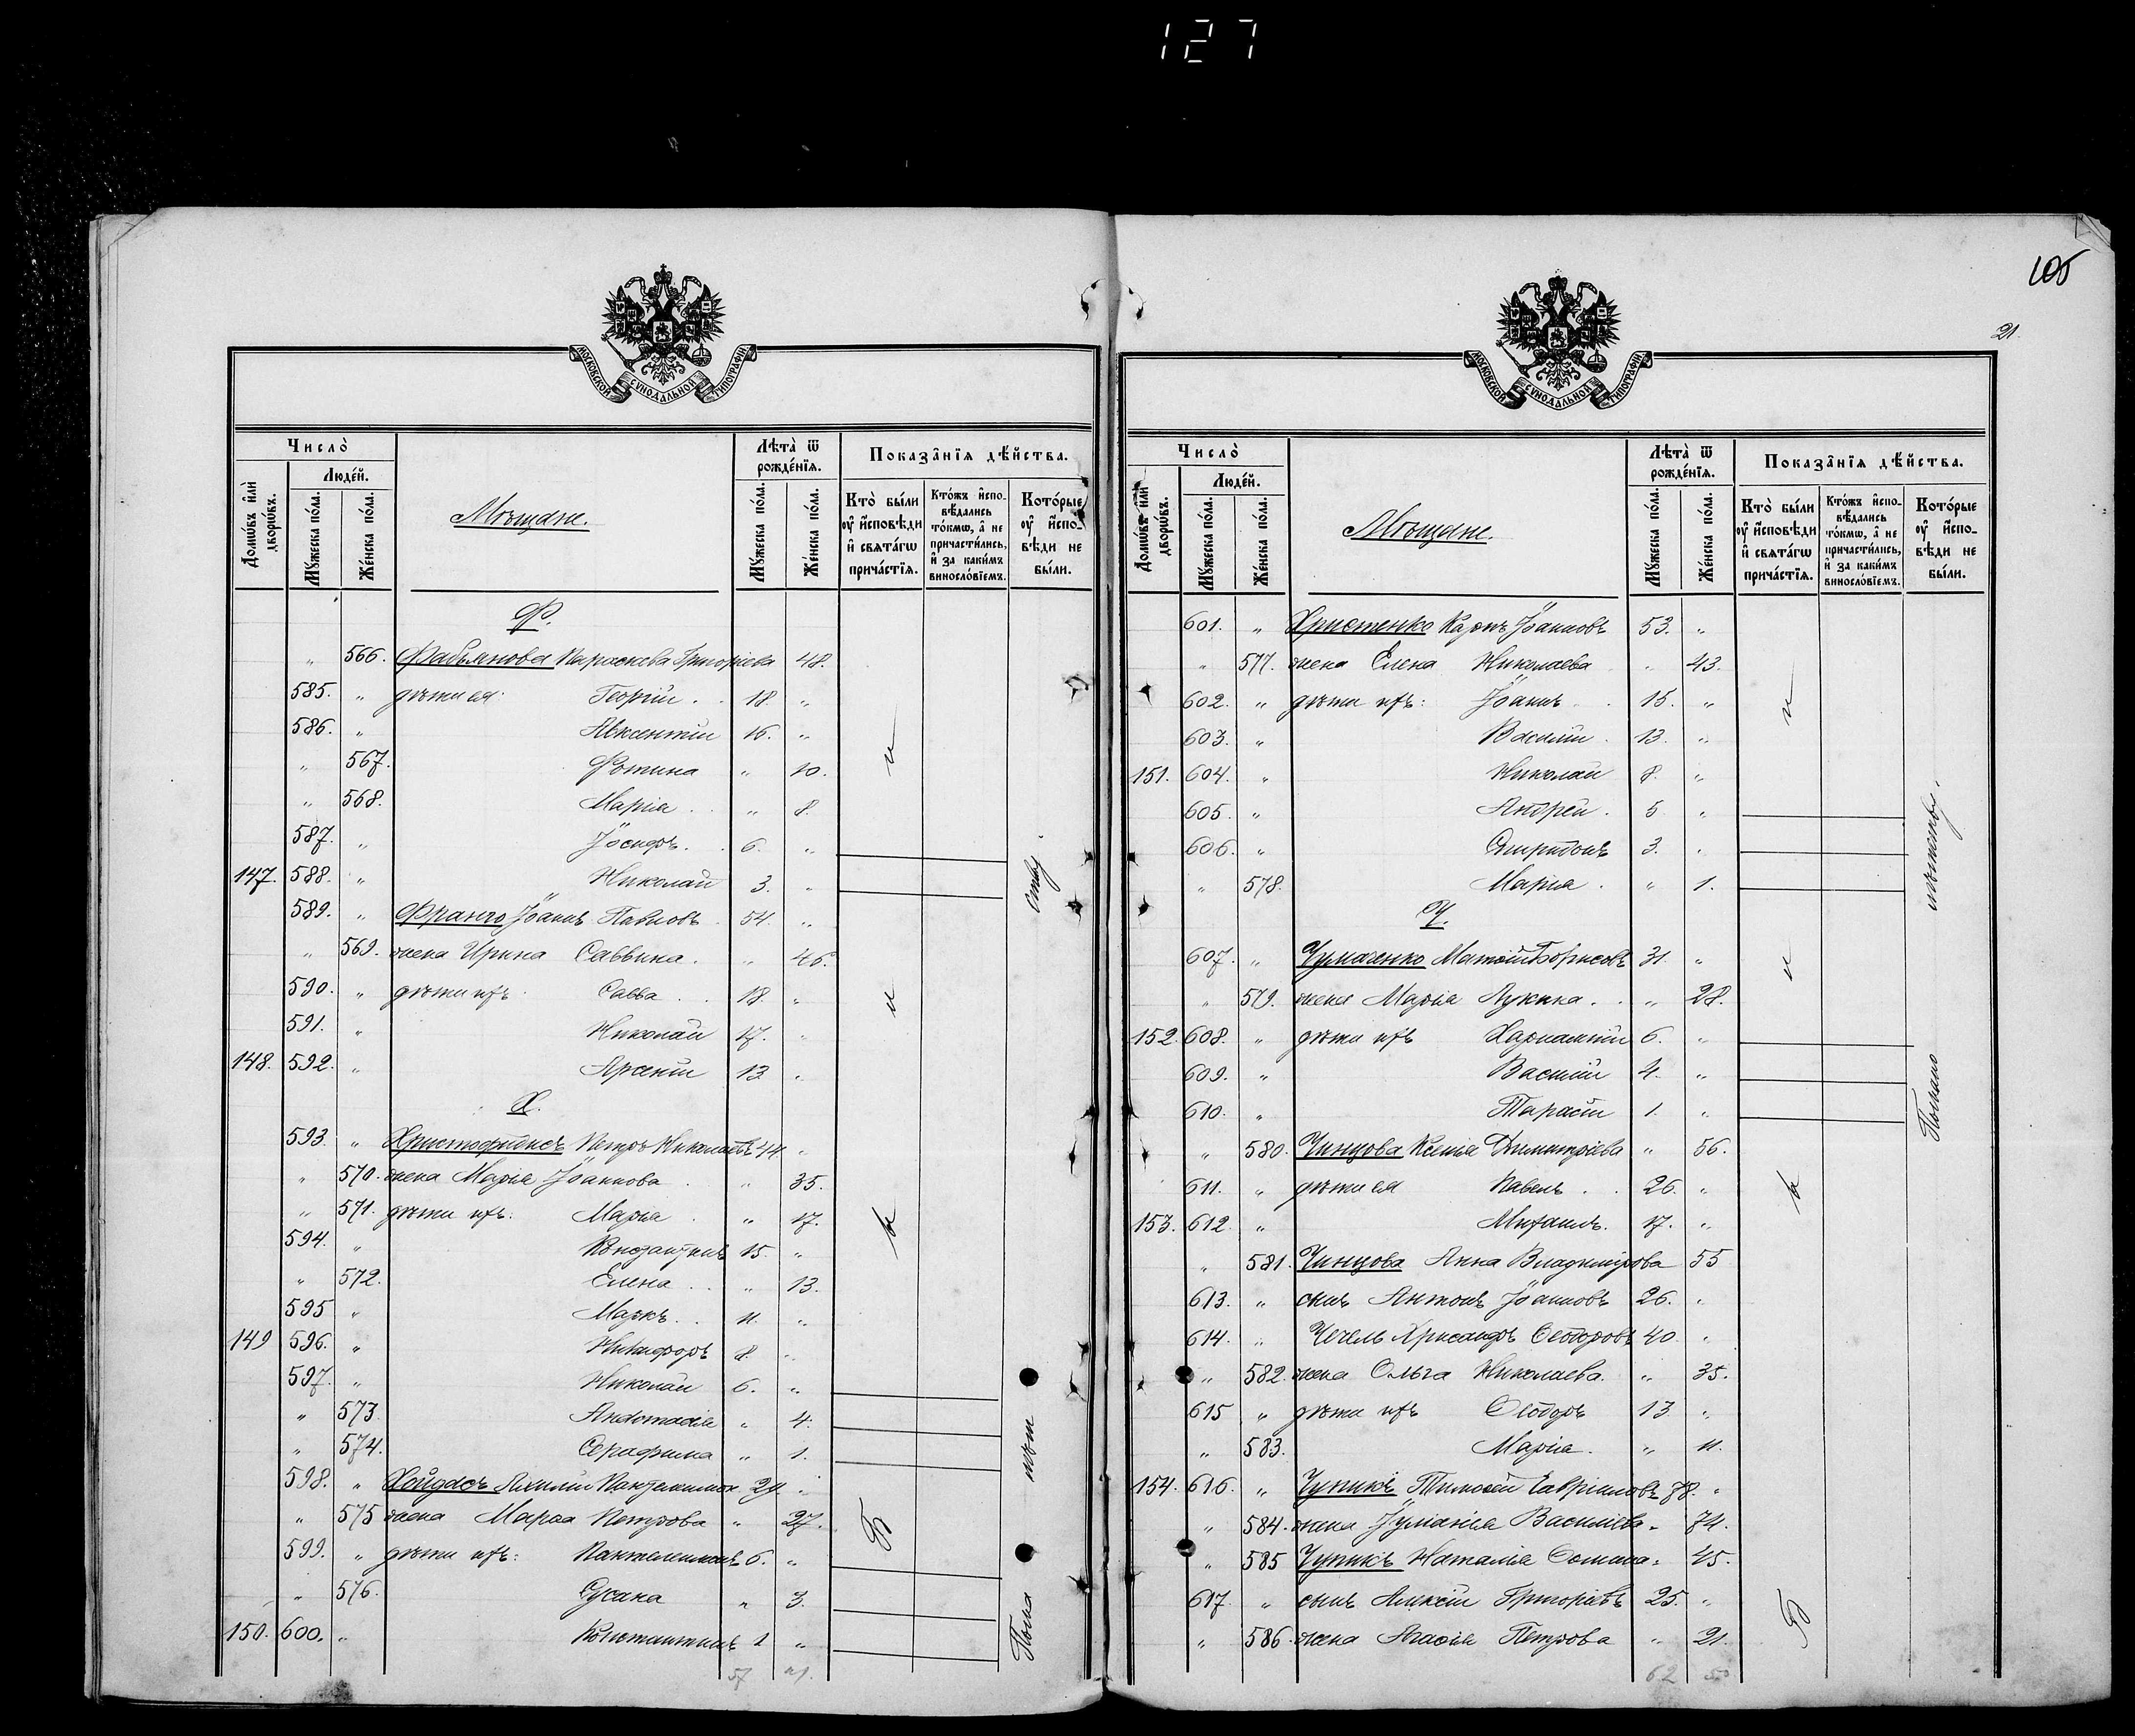 127
105
21.
МОСКОВСКОЙ СУНОДАЛЬНОЙ ТИПОГРАФІИ
Число̀
Люде́й.
Домѡ́въ и҆лѝ дворѡ́въ.
Мꙋ́жеска по́ла.
Же́нска по́ла.
Мѣщане.
Лѣта̀ ѿ рожде́нїѧ.
Мꙋ́жеска по́ла.
Же́нска по́ла.
Показа̑нїѧ дѣ́йства.
Кто̀ бы́ли ᲂу҆ и҆́сповѣди и҆ свѧта́гѡ прича́стїѧ.
Кто́жъ и҆спо-вѣдались то́кмѡ, а҆ не причасти́лись, и҆ за каки́мъ винослові́емъ.
Кото́рые ᲂу҆ и҆́спо-вѣди не бы́ли.
Ф.
„ 566. Фабьянова Параскева Григоріева 48.
585. „ дѣти ея: Георгій . . 18. „
586. „ Авксентій 16. „
„ 567. Фотина „ 10.
„ 568. Марія . . „ 8.
587. „ Іосифъ. . 6. „
147. 588. „ Николай 3. „
589. „ Франго Іоаннъ Павловъ 54. „
„ 569. жена Ирина Саввина. „ 46.
590. „ дѣти ихъ Савва . . 18. „
591. „ Николай 17. „
148. 592. „ Арсеній 13. „
Х.
593. „ Христофидисъ Петръ Николаевъ 44 „
„ 570. жена Марія Іоаннова . „ 35.
„ 571. дѣти ихъ: Марія . „ 17.
594. „ Константинъ 15. „
„ 572. Елена . . „ 13.
595 „ Маркъ. . 11. „
149 596. „ Никифоръ 8. „
597. „ Николай 6. „
„ 573. Анастасія „ 4.
„ 574. Серафима „ 1.
598. „ Хойдасъ Пантелеимон. 29. „
„ 575 жена Марѳа Петрова „ 27.
599. „ дѣти ихъ: Пантелеимонъ 6. „
„ 576. Сусана „ 3.
150. 600. „ Константинъ 1 „
57 41.
МОСКОВСКОЙ СУНОДАЛЬНОЙ ТИПОГРАФІИ
Число̀
Люде́й.
Домѡ́въ и҆лѝ дворѡ́въ.
Мꙋ́жеска по́ла.
Же́нска по́ла.
Мѣщане.
Лѣта̀ ѿ рожде́нїѧ.
Мꙋ́жеска по́ла.
Же́нска по́ла.
Показа̑нїѧ дѣ́йства.
Кто̀ бы́ли ᲂу҆ и҆́сповѣди и҆ свѧта́гѡ прича́стїѧ.
Кто́жъ и҆спо-вѣдались то́кмѡ, а҆ не причасти́лись, и҆ за каки́мъ винослові́емъ.
Кото́рые ᲂу҆ и҆́спо-вѣди не бы́ли.
601. „ Христенко Карпъ Іоанновъ 53. „
„ 577. жена Елена Николаева „ 43.
602. „ дѣти ихъ: Іоаннъ . 15. „
603. „ Василій . 13. „
151. 604. „ Николай 8. „
605. „ Андрей . 5 „
606. „ Спиридонъ 3. „
„ 578. Марія . „ 1.
Ч.
607. „ Чумаченко Матѳій Борисовъ 31. „
„ 579. жена Марія Лукина . . „ 28.
152. 608. „ дѣти ихъ Харлампій 6. „
609. „ Василій 4. „
610. „ Тарасій 1. „
„ 580. Чинцова Ксенія Димитріева „ 56.
611. „ дѣти ея Павелъ . . 26. „
153. 612. „ Михаилъ. 17. „
„ 581. Чинцова Анна Владимірова 55
613. „ сынъ Антонъ Іоанновъ 26. „
614. „ Чечель Хрисанфъ Ѳеодоровъ 40. „
„ 582. жена Ольга Николаева. „ 35.
615 „ дѣти ихъ Ѳеодоръ 13. „
„ 583. Марія. „ 11.
154. 616. „ Чупикъ Тимоѳей Гавріиловъ 78. „
„ 584. жена Іуліанія Василіева „ 74.
„ 585 Чупикъ Наталія Ѳомина „ 45.
617. „ сынъ Алексій Григоріевъ 25. „
„ 586. жена Агаѳія Петрова „ 21.
62 50